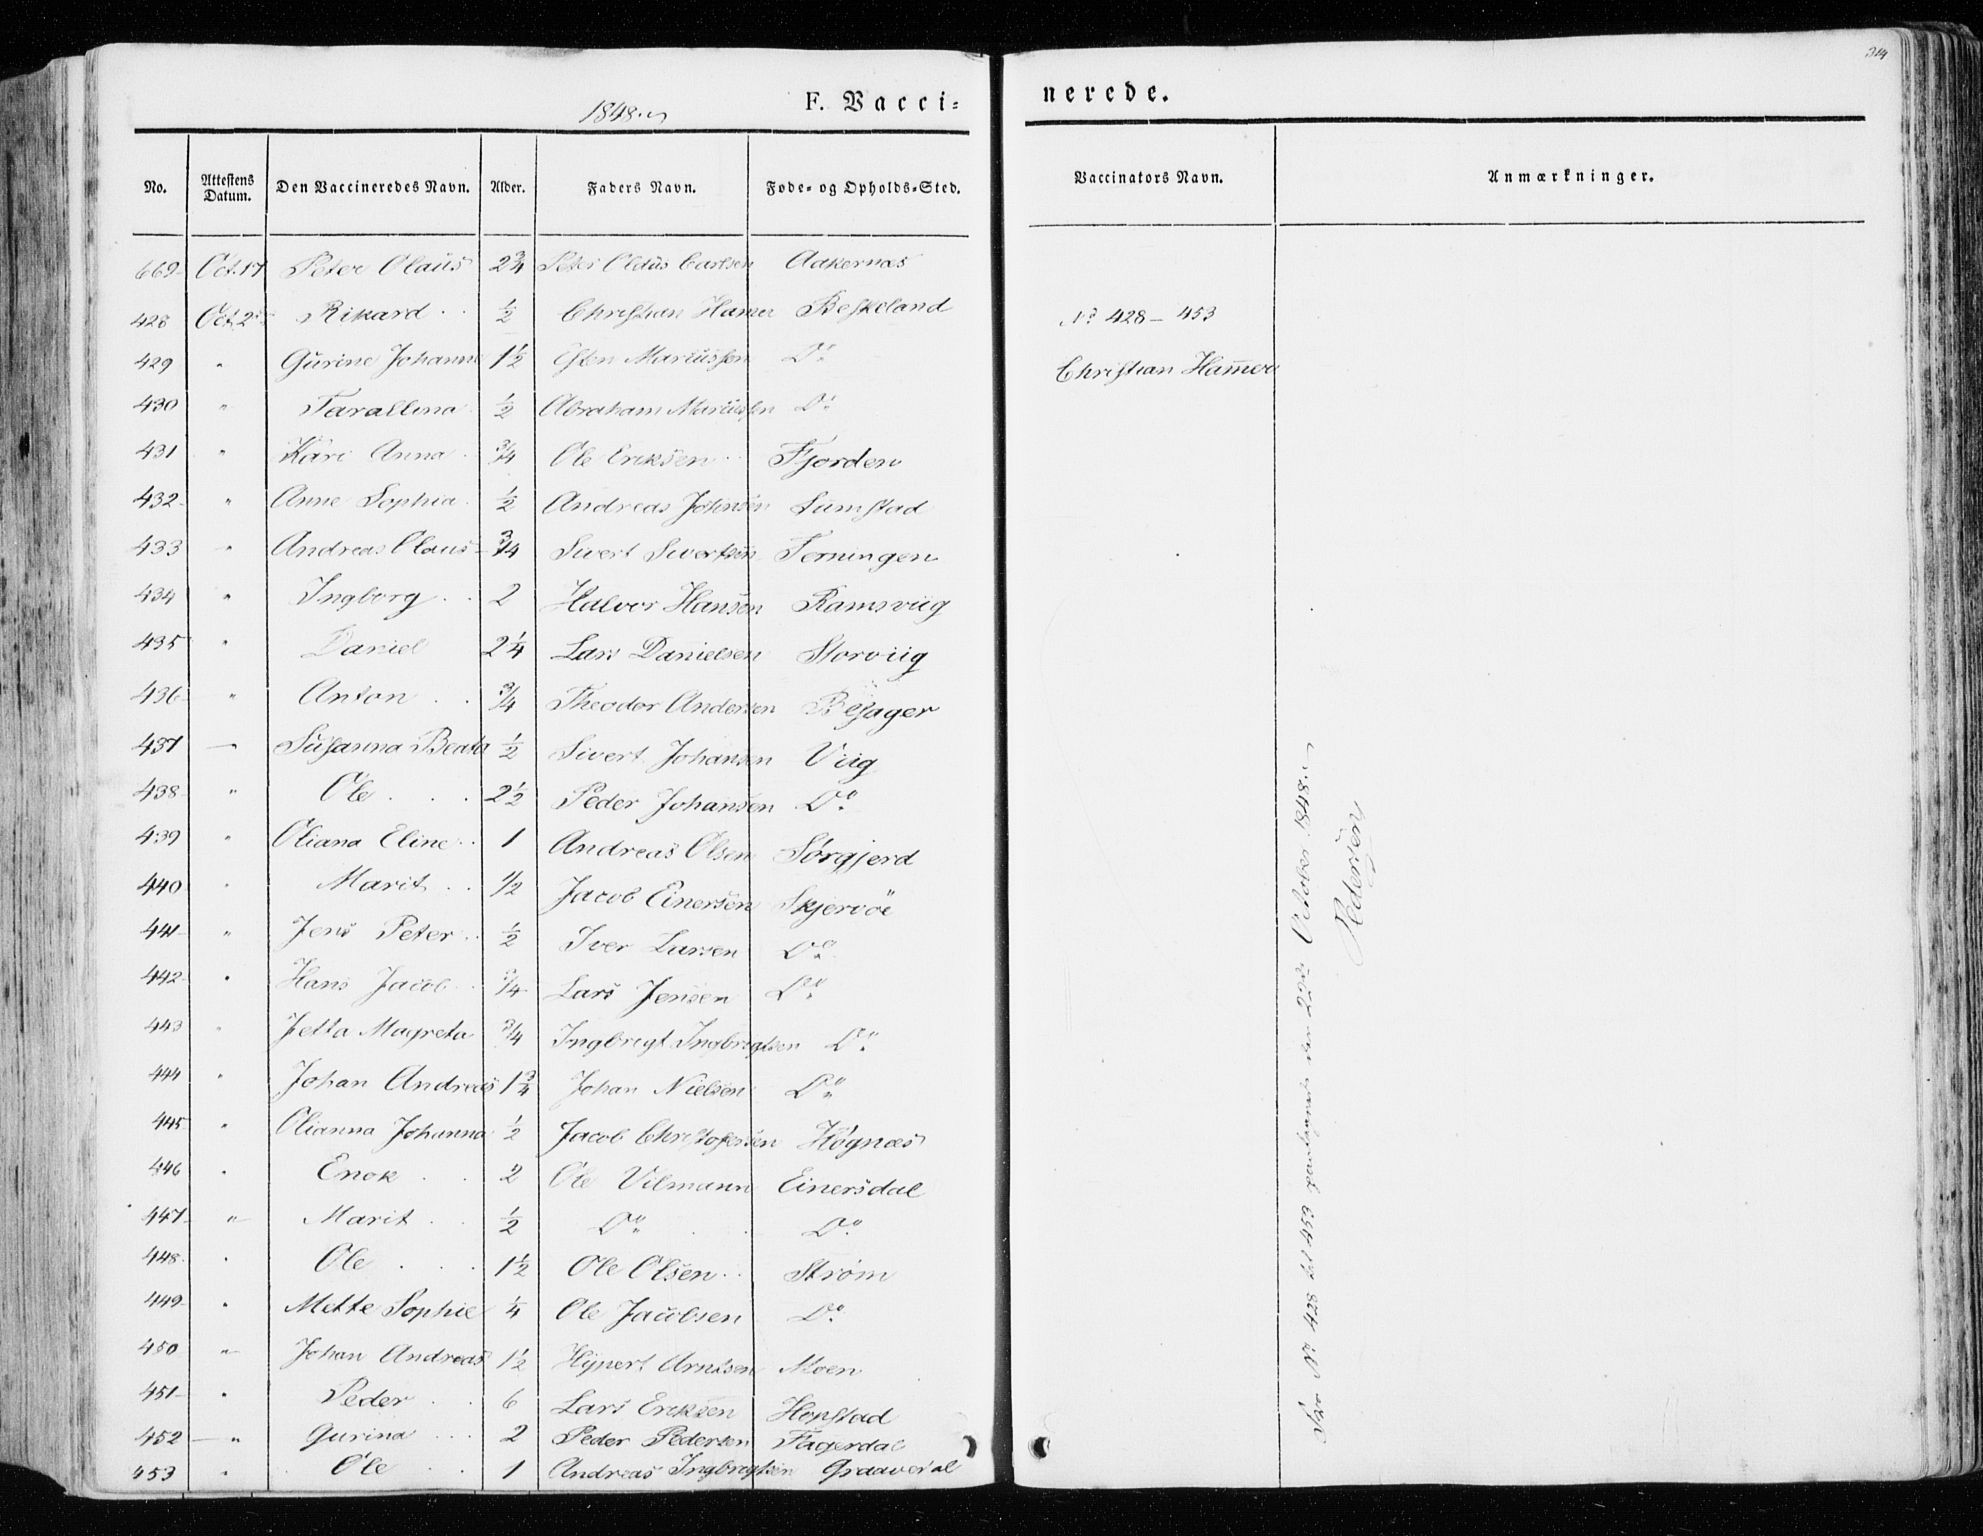 314
1848.
F. Vacci=
nerede.
No. Attestens Datum. Den Vaccineredes Navn. Alder. Faders Navn. Føde- og Opholds-Sted.
Vaccinators Navn. Anmærkninger.
669 Oct. 17 Peter Olaüs 2 3/4 Carlsen Aakernæs
428 Rikard 1/2 Christian Hamer Beskeland
429 " Gurine Johanna 1 1/2 Esten Mariüssen Do
430 " Tarallina 1/2 Abraham Mariüssen Do
431 " Kari Anna 3/4 Ole Eriksen Fjorden
432 " Anne Sophia 1/2 Andreas Johnsen Sumstad
433 " Andreas Olaus 3/4 Sivert Sivertsen Terningen
434 " Ingborg 2 Halvor Hansen Ramsviig
435 " Daniel 2 1/4 Lars Danielsen Storviig
436 " Anton 3/4 Theodor Andersen Besager
437 " Susanna Beata 1/2 Sivert Johansen Viig
438 " Ole 2 1/2 Peder Johansen Do
439 " Oliana Eline 1 Andreas Olsen Sørgjerd
440 " Marit 1/2 Jacob Einersen Skjervöe
441 " Jens Peter 1/2 Iver Larsen Do
442 " Hans Jacob 3/4 Lars Jensen Do
443 " Jetta Magreta 3/4 Ingbrigt Ingbrigtsen Do
444 " Johan Andreas 1 3/4 Johan Nielsen Do
445 " Olianna Johanna 1/2 Jacob Christofersen Høgnæs
446 " Enok 2 Ole Vilmann Einersdal
447 " Marit 1/2 Do Do
448 " Ole 1 1/2 Ole Olsen Strøm
449 " Mette Sophie 1/4 Ole Jacobsen Do
450 " Johan Andreas 1 1/2 Arntsen Moen
451 " Peder 6 Lars Eriksen Hopstad
452 " Gurina 2 Peder Pedersen Fagerdal
453 " Ole 1 Andreas Ingbrigtsen
No 428 - 453
Christian Ham̄er
No 428 til 453 den 22de October 1848.
Pedersen